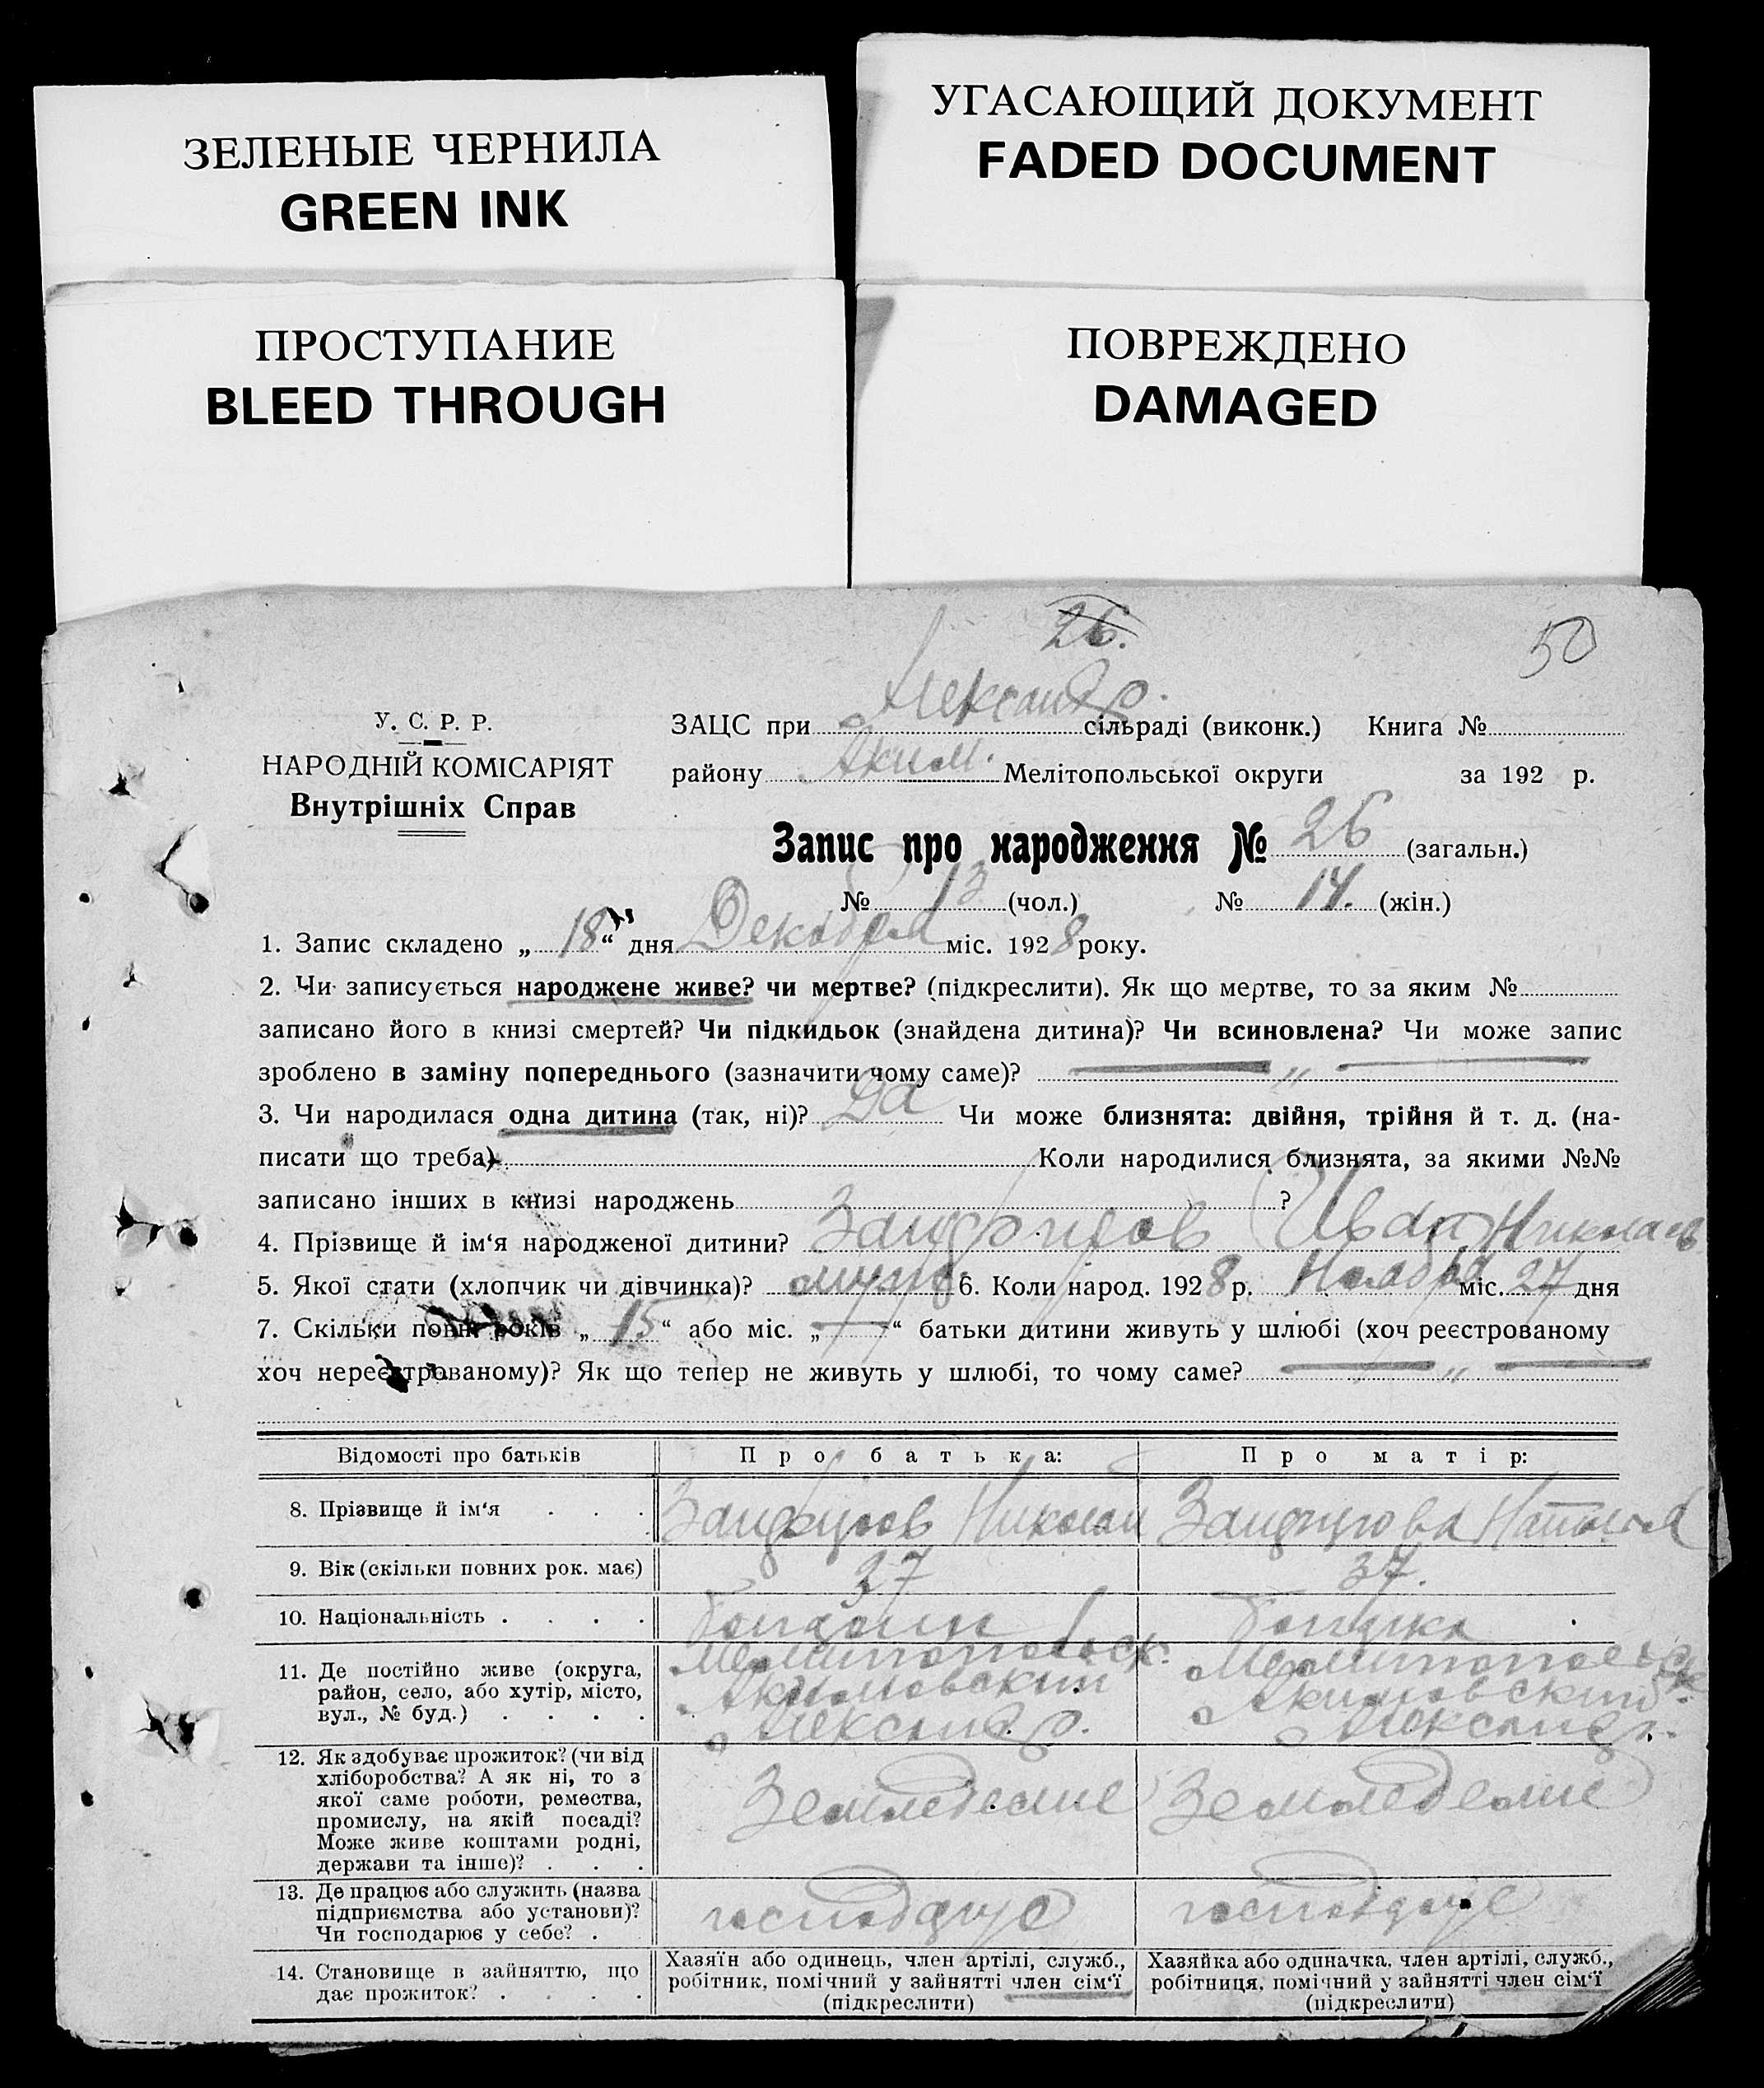 ЗЕЛЕНЫЕ ЧЕРНИЛА
GREEN INK
УГАСАЮЩИЙ ДОКУМЕНТ
FADED DOCUMENT
ПРОСТУПАНИЕ
BLEED THROUGH
ПОВРЕЖДЕНО
DAMAGED
26.
50
У. С. Р. Р.
НАРОДНІЙ КОМІСАРІЯТ
Внутрішніх Справ
ЗАЦС при Александр. сільраді (виконк.) Книга №
району Аким. Мелітопольської округи за 192 р.
Запис про народження № 26 (загальн.)
№ 13 (чол.) № 14. (жін.)
1. Запис складено „ 18 “ дня Декабря міс. 1928 року.
2. Чи записується народжене живе? чи мертве? (підкреслити). Як що мертве, то за яким №
записано його в книзі смертей? Чи підкидьок (знайдена дитина)? Чи всиновлена? Чи може запис
зроблено в заміну попереднього (зазначити чому саме)? — „ —
3. Чи народилася одна дитина (так, ні)? Да Чи може близнята: двійня, трійня й т. д. (на-
писати що треба) Коли народилися близнята, за якими №№
записано інших в книзі народжень ?
4. Прізвище й ім‘я народженої дитини? Иван Николаев
5. Якої стати (хлопчик чи дівчинка)? 6. Коли народ. 1928 р. Ноября міс. 27 дня
7. Скільки повн. років „ 15 “ або міс. „ — “ батьки дитини живуть у шлюбі (хоч реєстрованому
хоч нереєстрованому)? Як що тепер не живуть у шлюбі, то чому саме? — „ —
Відомості про батьків Про батька: Про матір:
8. Прізвище й ім‘я . . . Николай
9. Вік (скільки повних рок. має) 37 37.
10. Національність . . . .
11. Де постійно живе (округа,
район, село, або хутір, місто,
вул., № буд.) . . . .
Мелитопольск.
Акимовский
Александр.
Мелитопольск
Акимовский
Александр.
12. Як здобуває прожиток? (чи від
хліборобства? А як ні, то з
якої саме роботи, ремества,
промислу, на якій посаді?
Може живе коштами родні,
держави та інше)? . . .
Земледелие Земледелие
13. Де працює або служить (назва
підприємства або установи)?
Чи господарює у себе? .
господарує господарує
14. Становище в зайняттю, що
дає прожиток? . . . .
Хазяїн або одинець, член артілі, служб.,
робітник, помічний у зайнятті член сім‘ї
(підкреслити)
Хазяйка або одиначка, член артілі, служб.,
робітниця, помічний у зайнятті член сім‘ї
(підкреслити)